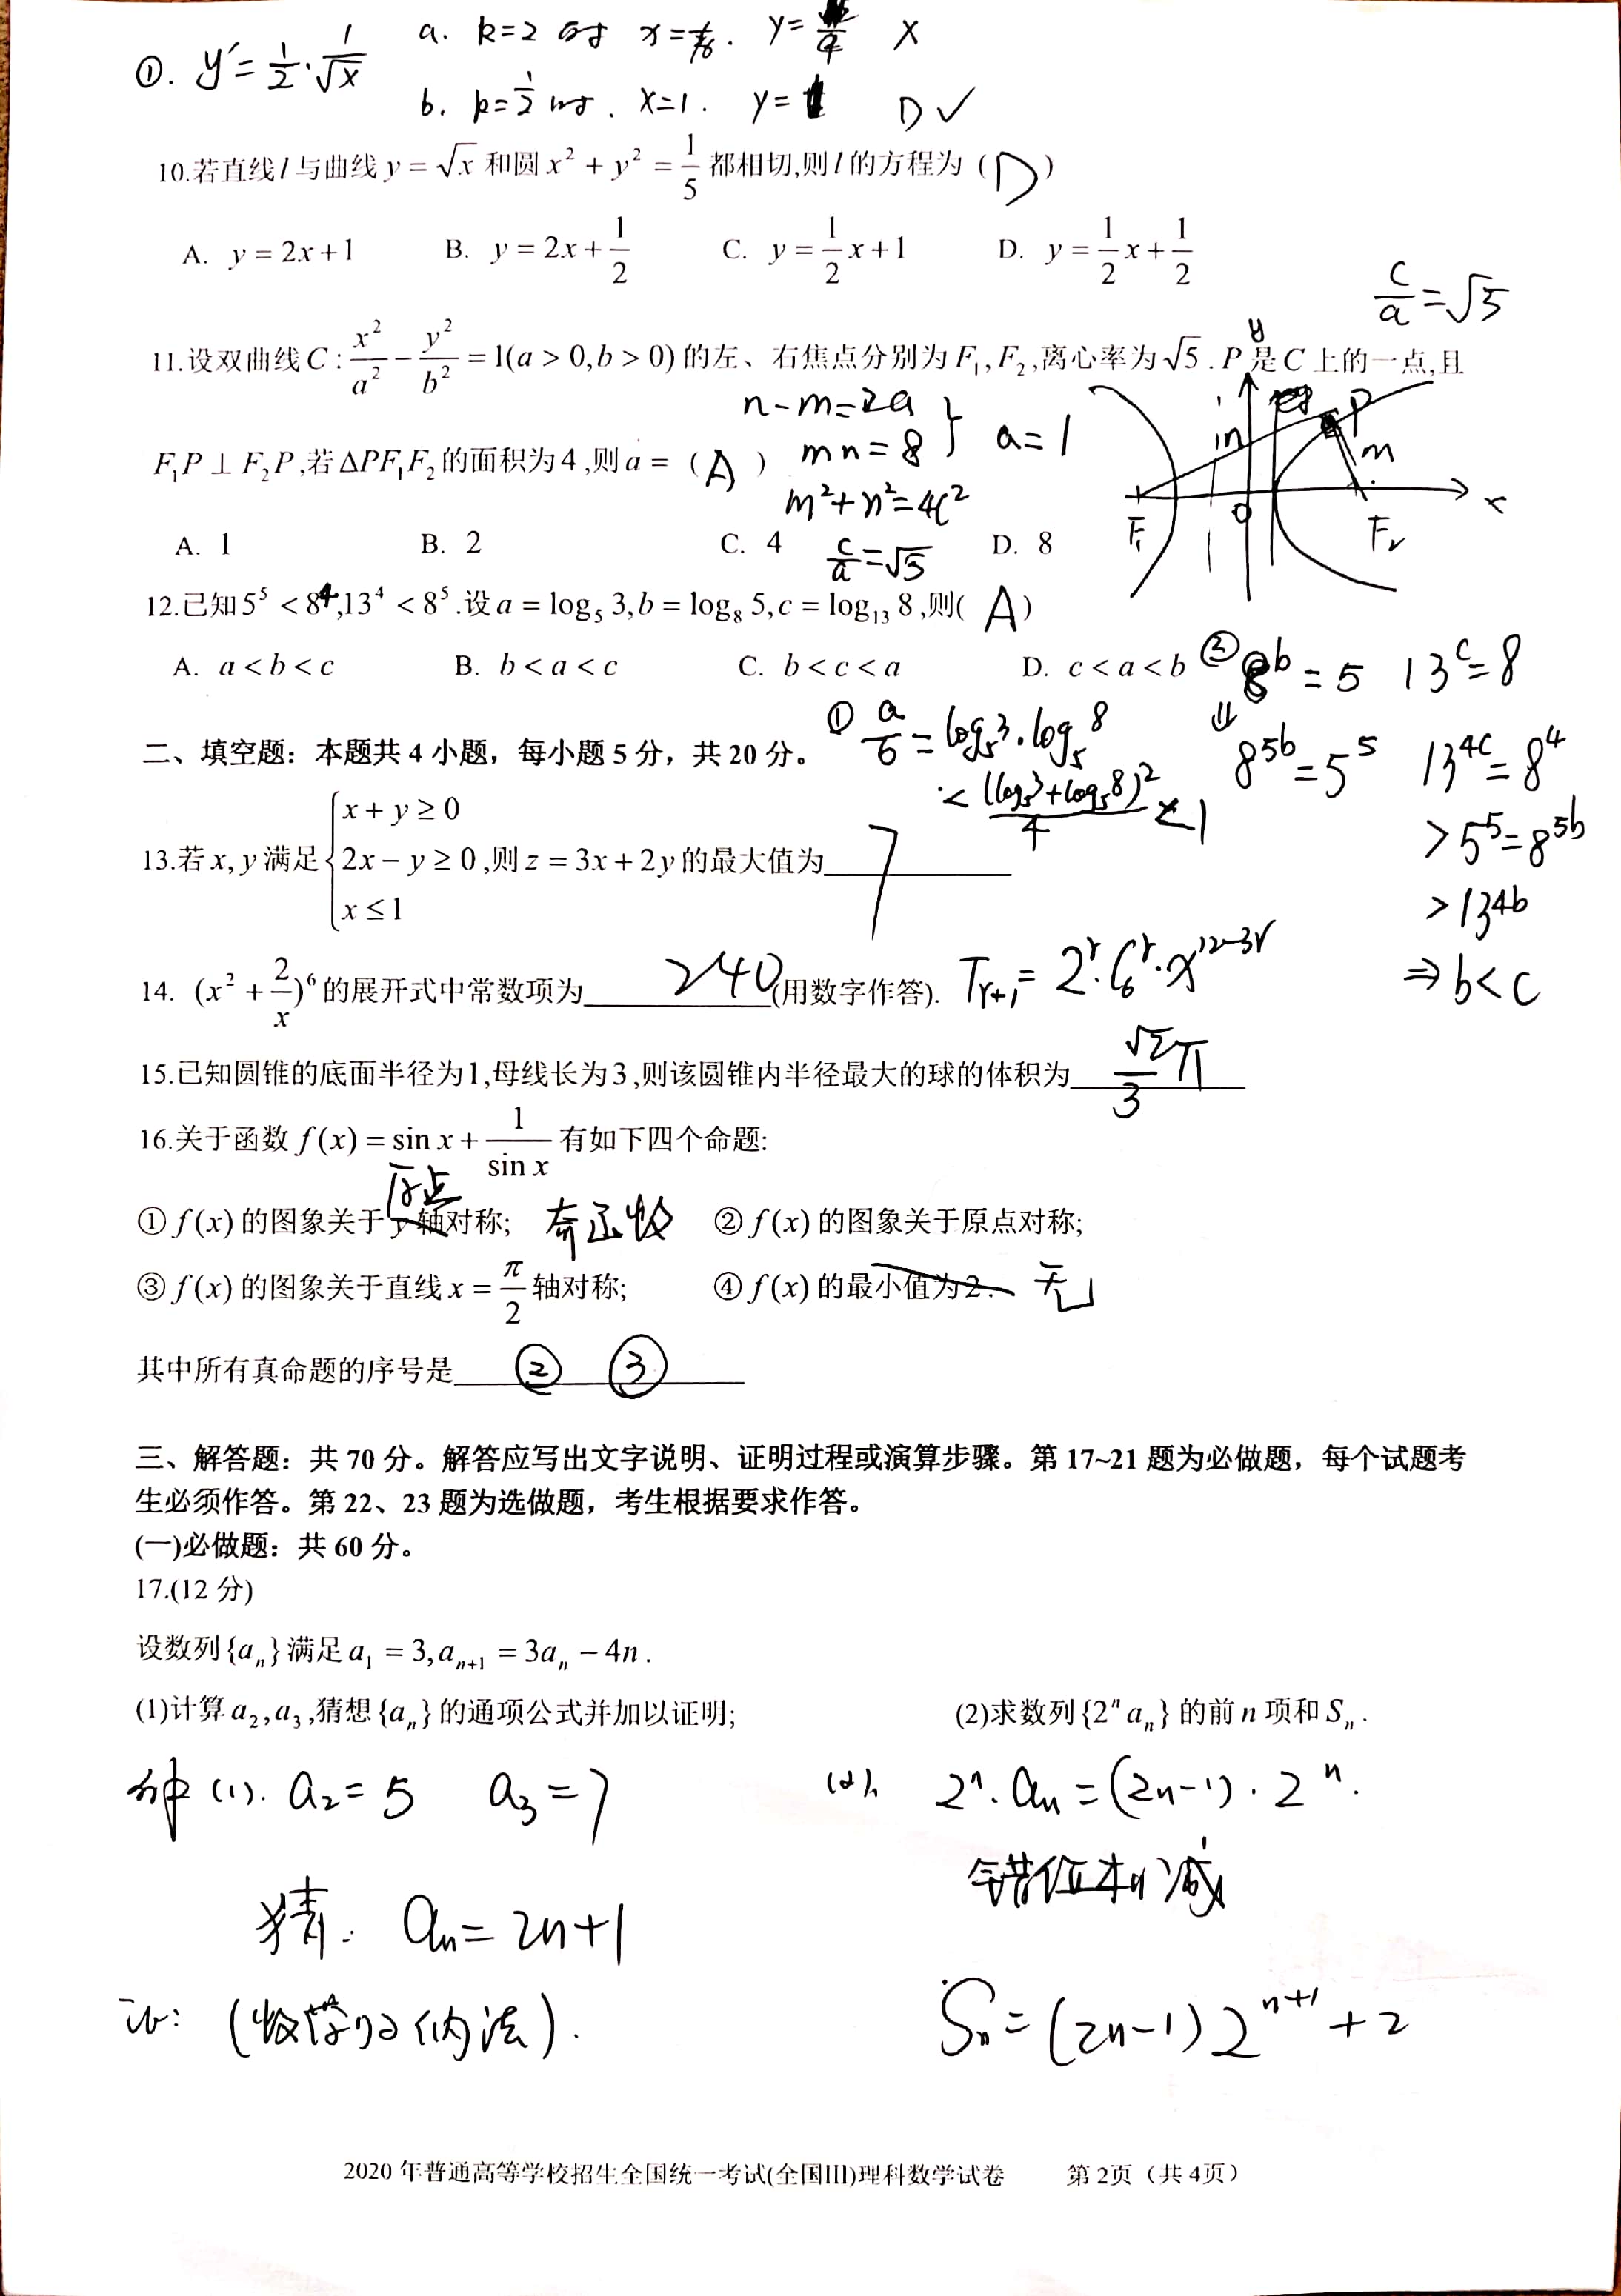 ①. y′=1/2·1/√x
a. k=2时 x=1/16. y= X
b. k=1/2时. x=1. y=1 D✓
10.若直线l与曲线y=√x和圆x²+y²=1/5都相切,则l的方程为（D）
A. y=2x+1 B. y=2x+1/2 C. y=1/2x+1 D. y=1/2x+1/2
c/a=√5
11.设双曲线C:x²/a²−y²/b²=1(a>0,b>0)的左、右焦点分别为F₁,F₂,离心率为√5.P是C上的一点,且
n-m=2a
mn=8 } a=1
F₁P⊥F₂P,若ΔPF₁F₂的面积为4,则a=（A）
m²+n²=4c²
c/a=√5
y P n m F₁ O F₂ x
A. 1 B. 2 C. 4 D. 8
12.已知5⁵<8⁴,13⁴<8⁵.设a=log₅3,b=log₈5,c=log₁₃8,则(A)
A. a<b<c B. b<a<c C. b<c<a D. c<a<b
① a/b=log₅3·log₅8
<(log₅3+log₅8)²/4<1
② 8ᵇ=5 13ᶜ=8
⇓
8⁵ᵇ=5⁵ 13⁴ᶜ=8⁴
>5⁵=8⁵ᵇ
>13⁴ᵇ
⇒b<c
二、填空题：本题共4小题，每小题5分，共20分。
13.若x,y满足{x+y≥0
2x−y≥0
x≤1
,则z=3x+2y的最大值为 7
14. (x²+2/x)⁶的展开式中常数项为 240 (用数字作答). Tᵣ₊₁=2ʳ·C₆ʳ·x¹²⁻³ʳ
15.已知圆锥的底面半径为1,母线长为3,则该圆锥内半径最大的球的体积为 √2/3π
16.关于函数f(x)=sin x+1/sin x有如下四个命题:
①f(x)的图象关于y轴对称; 原点 奇函数 ②f(x)的图象关于原点对称;
③f(x)的图象关于直线x=π/2轴对称; ④f(x)的最小值为2. 无
其中所有真命题的序号是 ② ③
三、解答题：共70分。解答应写出文字说明、证明过程或演算步骤。第17~21题为必做题，每个试题考
生必须作答。第22、23题为选做题，考生根据要求作答。
(一)必做题：共60分。
17.(12分)
设数列{aₙ}满足a₁=3,aₙ₊₁=3aₙ−4n.
(1)计算a₂,a₃,猜想{aₙ}的通项公式并加以证明; (2)求数列{2ⁿaₙ}的前n项和Sₙ.
解(1). a₂=5 a₃=7
猜: aₙ=2n+1
证:（数学归纳法）.
(2). 2ⁿ·aₙ=(2n-1)·2ⁿ.
错位相减
Sₙ=(2n-1)2ⁿ⁺¹+2
2020年普通高等学校招生全国统一考试(全国III)理科数学试卷 第2页（共4页）